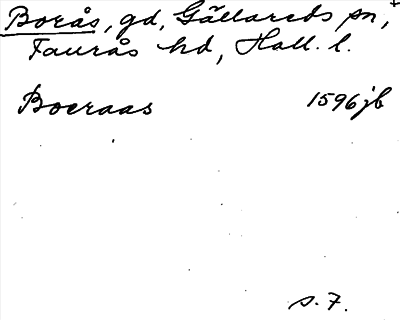 Borås, gd, Gällareds sn, +
Faurås hd, Hall. l.
Boeraas 1596 jb
s. 7.